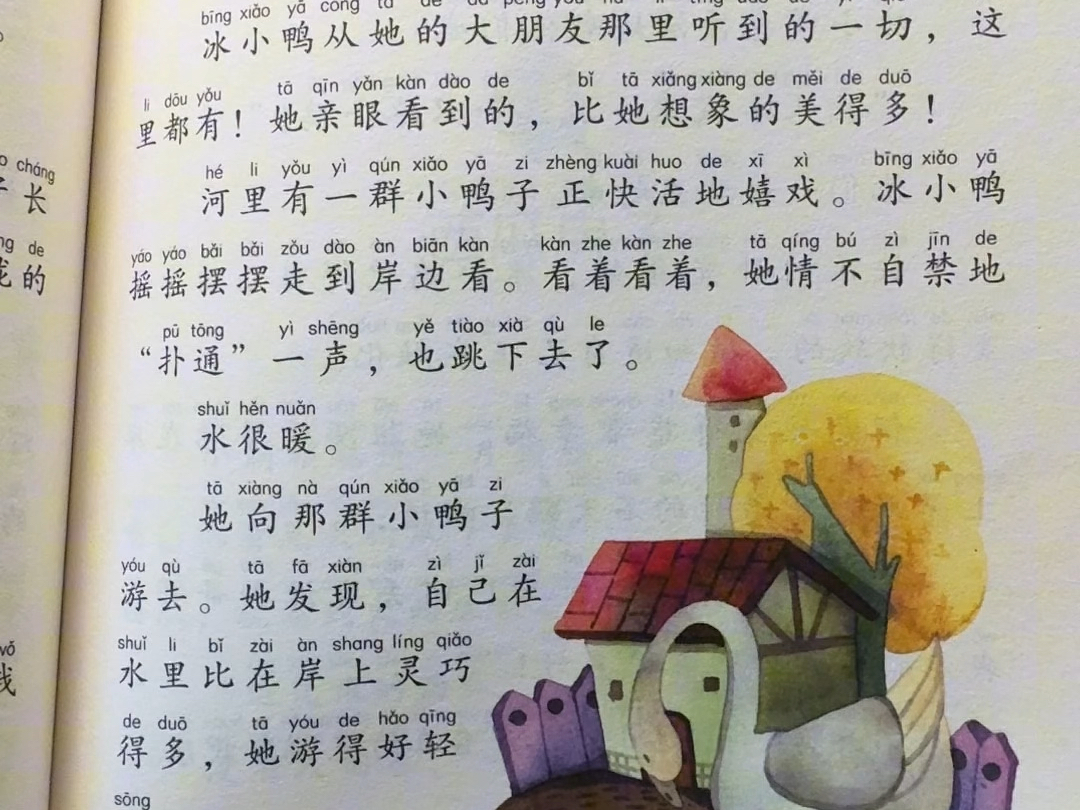 bīng xiǎo yā cóng tā de dà péng yǒu nà li tīng dào de yí qiè
冰小鸭从她的大朋友那里听到的一切，这
li dōu yǒu tā qīn yǎn kàn dào de bǐ tā xiǎng xiàng de měi de duō
里都有！她亲眼看到的，比她想象的美得多！
hé li yǒu yì qún xiǎo yā zi zhèng kuài huo de xī xì bīng xiǎo yā
河里有一群小鸭子正快活地嬉戏。冰小鸭
yáo yáo bǎi bǎi zǒu dào àn biān kàn kàn zhe kàn zhe tā qíng bú zì jīn de
摇摇摆摆走到岸边看。看着看着，她情不自禁地
pū tōng yì shēng yě tiào xià qù le
“扑通”一声，也跳下去了。
shuǐ hěn nuǎn
水很暖。
tā xiàng nà qún xiǎo yā zi
她向那群小鸭子
yóu qù tā fā xiàn zì jǐ zài
游去。她发现，自己在
shuǐ li bǐ zài àn shang líng qiǎo
水里比在岸上灵巧
de duō tā yóu de hǎo qīng
得多，她游得好轻
sōng
cháng
长
de
的